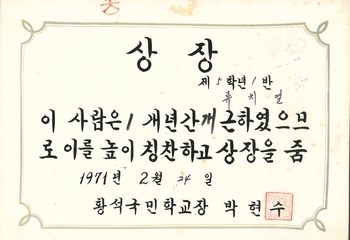 상 장
제 5 학년 1 반
류 치 열
이 사람은 1 개년간 개근하였으므
로 이를 높이 칭찬하고 상장을 줌
1971년 2월 24일
황석국민학교장 박현수